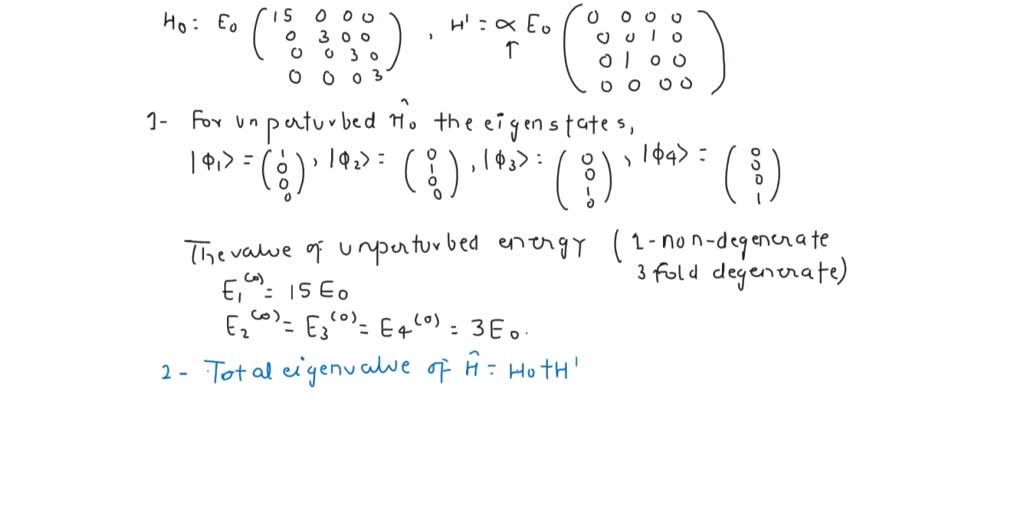 H₀ : E₀ (15 0 0 0 / 0 3 0 0 / 0 0 3 0 / 0 0 0 3) , H' = ∝ E₀ (0 0 0 0 / 0 0 1 0 / 0 1 0 0 / 0 0 0 0)
↑
1- For unperturbed Ĥ₀ the eigenstates,
|φ₁> = (1 0 0 0) , |φ₂> = (0 1 0 0) , |φ₃> : (0 0 1 0) , |φ₄> = (0 0 0 1)
The value of unperturbed energy ( 1-non-degenerate
3 fold degenerate)
E₁⁽⁰⁾ = 15 E₀
E₂⁽⁰⁾ = E₃⁽⁰⁾ = E₄⁽⁰⁾ = 3E₀.
2- Total eigenvalue of Ĥ = H₀+H'